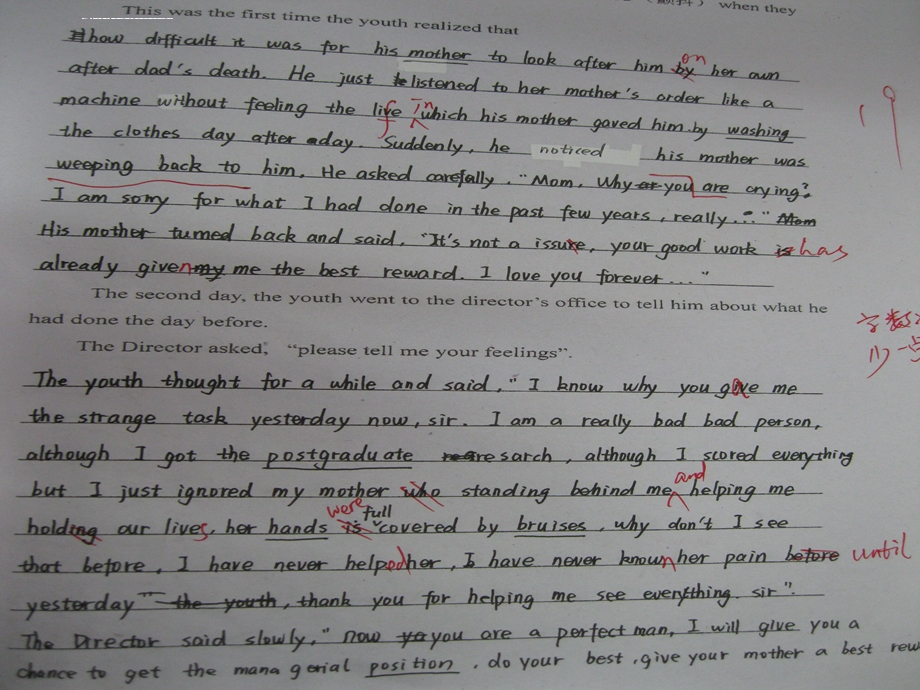 （颤抖） when they
This was the first time the youth realized that
how difficult it was for his mother to look after him by on her own
after dad's death. He just listened to her mother's order like a
machine without feeling the life in which his mother gaved him by washing
the clothes day after day. Suddenly, he noticed his mother was
weeping back to him. He asked carefally. "Mom, Why are you are crying?
I am sorry for what I had done in the past few years, really..." Mom
His mother turned back and said. "It's not a issure, your good work is has
already given my me the best reward. I love you forever..."
The second day, the youth went to the director's office to tell him about what he
had done the day before.
字数
少一点
The Director asked, "please tell me your feelings".
The youth thought for a while and said, "I know why you gave me
the strange task yesterday now, sir. I am a really bad bad person,
although I got the postgraduate resarch, although I scored everything
but I just ignored my mother who standing behind me and helping me
holding our lives, her hands is were full covered by bruises, why don't I see
that before, I have never helped her, I have never known her pain before until
yesterday" the youth, thank you for helping me see everything. sir".
The Director said slowly, "now you are a perfect man, I will give you a
chance to get the managerial position. do your best, give your mother a best rew
19